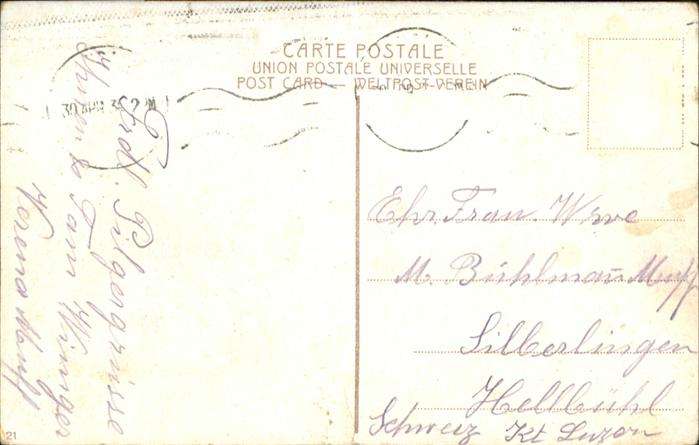 CARTE POSTALE
UNION POSTALE UNIVERSELLE
POST CARD — WELTPOST-VEREIN
Frdl. Pilgergrüsse
Ihnen & Fam Winiger
Verena Muff
Ehr. Frau. Wwe
M. Bühlmañ Muff
Silberlingen
Hellbühl
Schweiz Kt Luzern
21